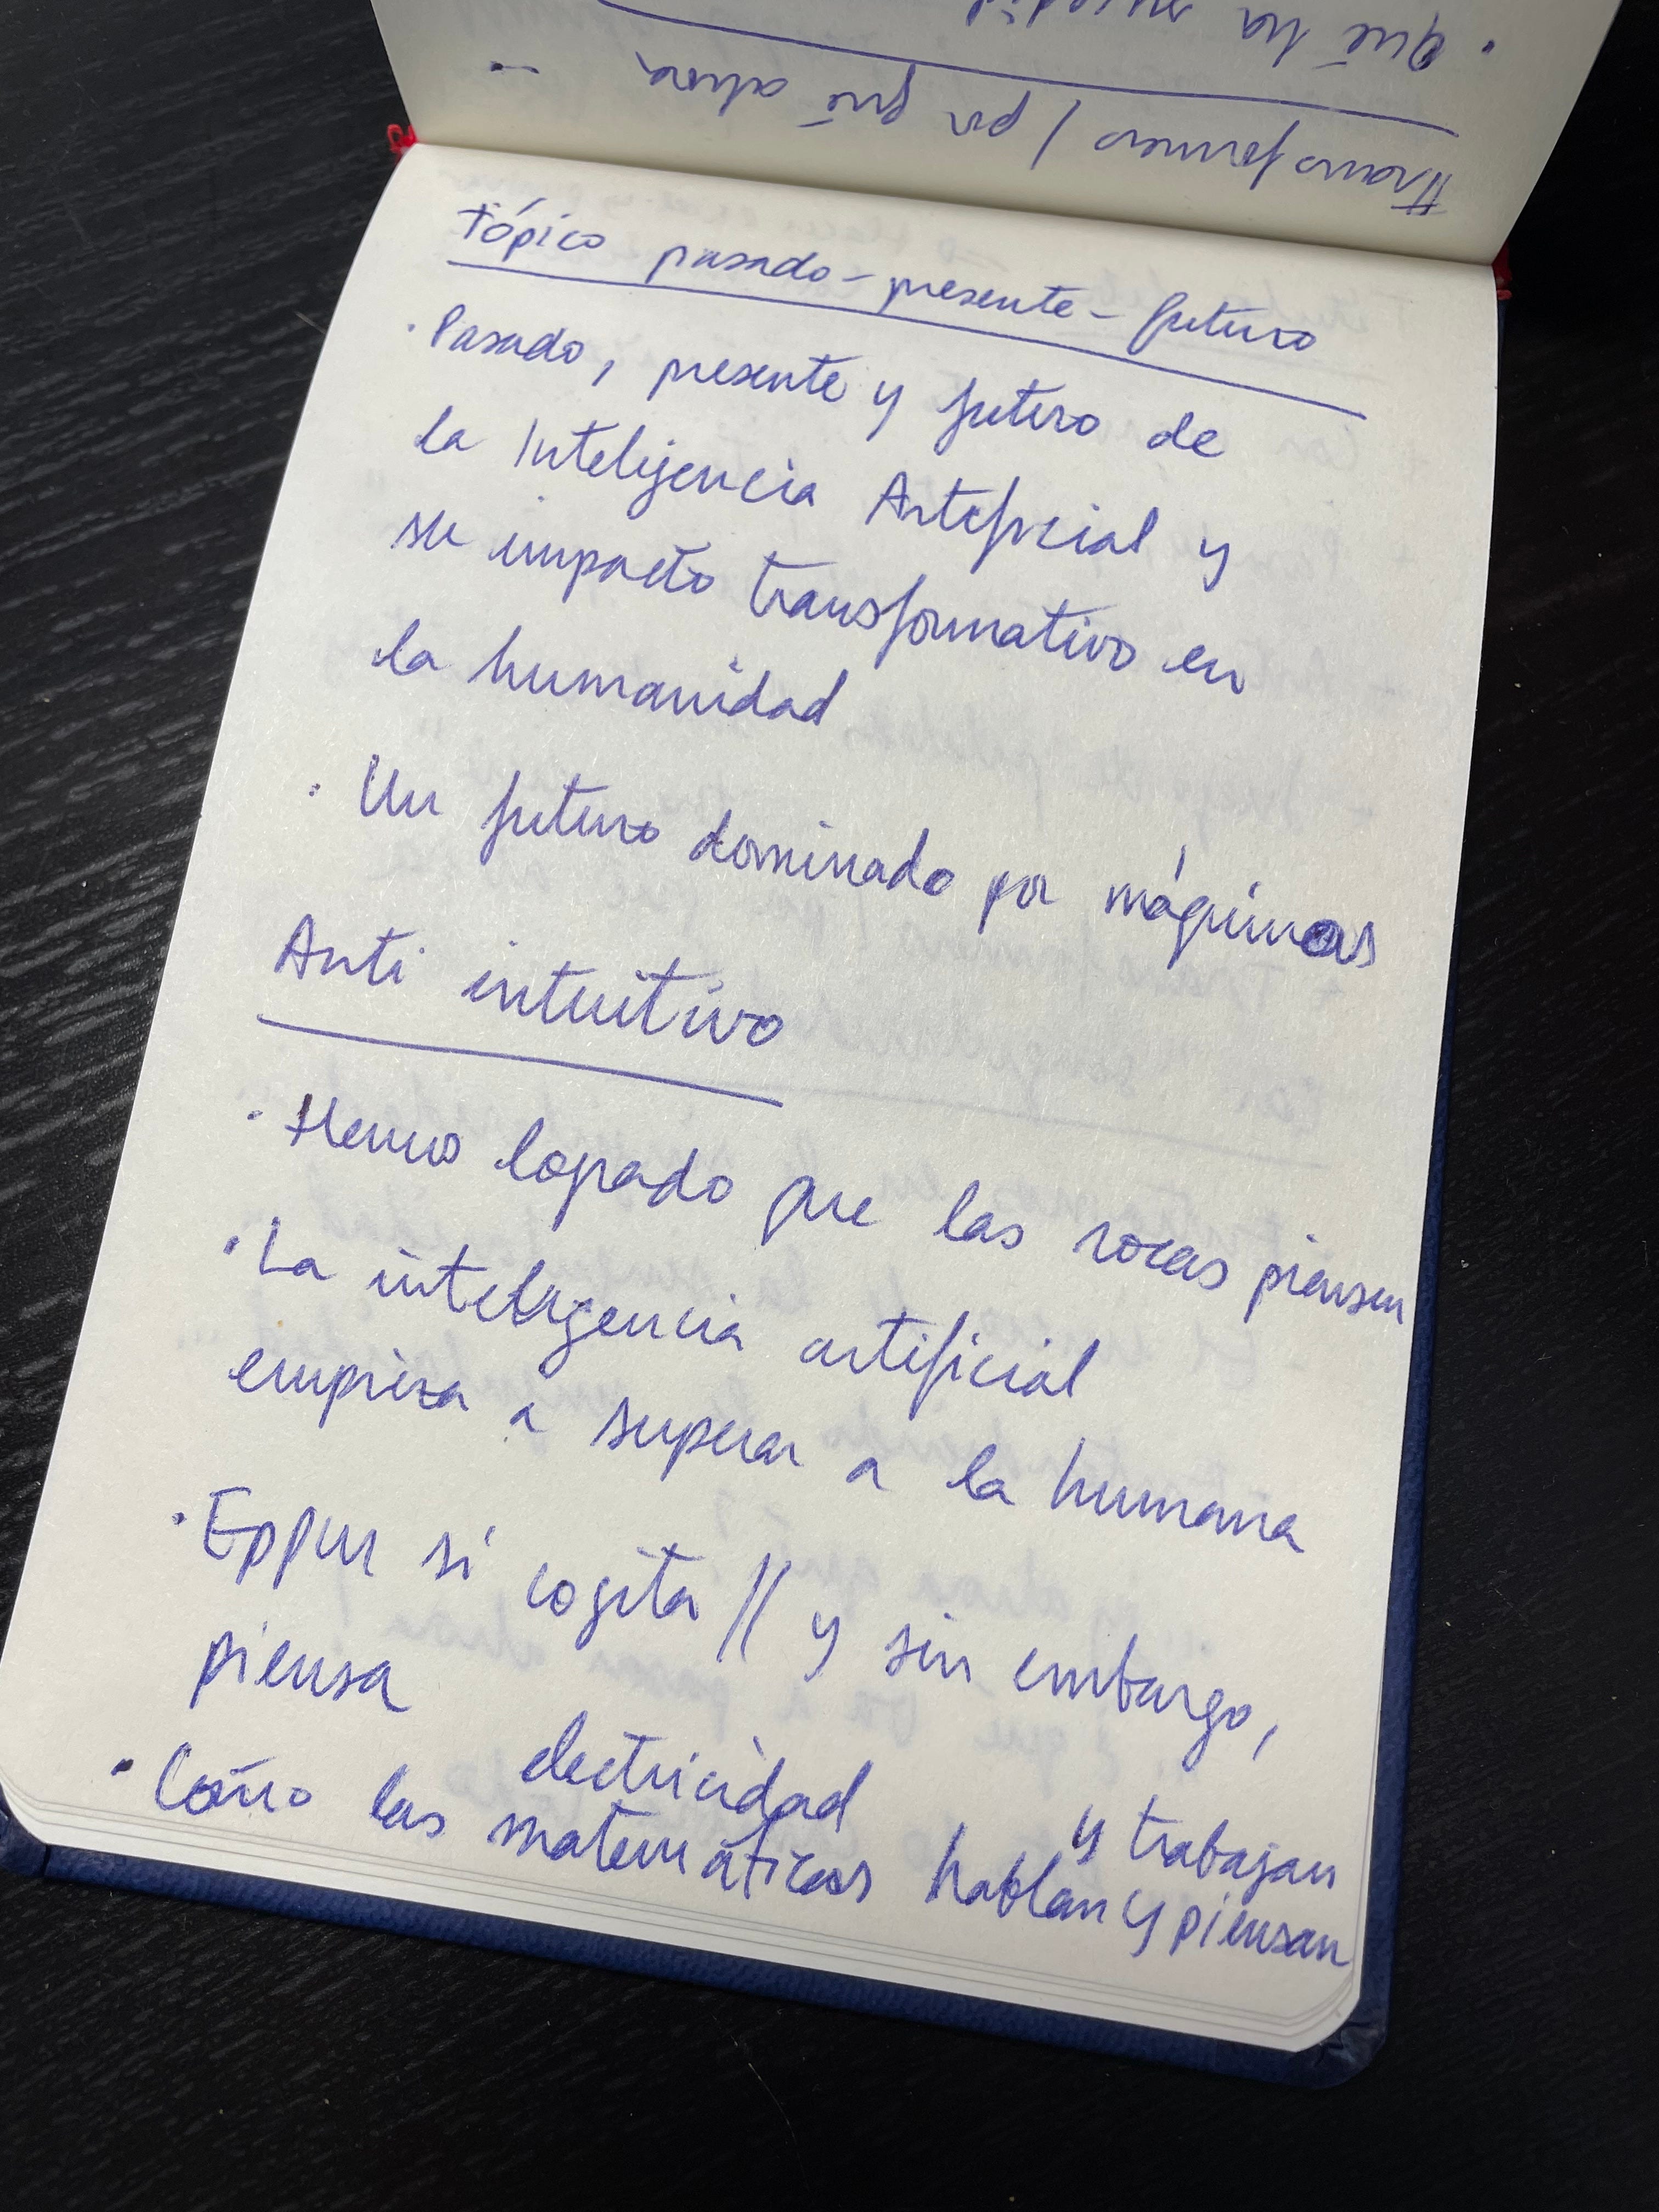 por qué ahora
Qué ha
Tópico pasado - presente - futuro
· Pasado, presente y futuro de
la Inteligencia Arteficial y
su impacto transformativo en
la humanidad
· Un futuro dominado por máquinas
Anti intuitivo
· Hemos logrado que las rocas piensen
· La inteligencia artificial
empieza a superar a la humana
· Eppur si cogita // y sin embargo,
piensa
electricidad y trabajan
· Cómo las matemáticas hablan y piensan